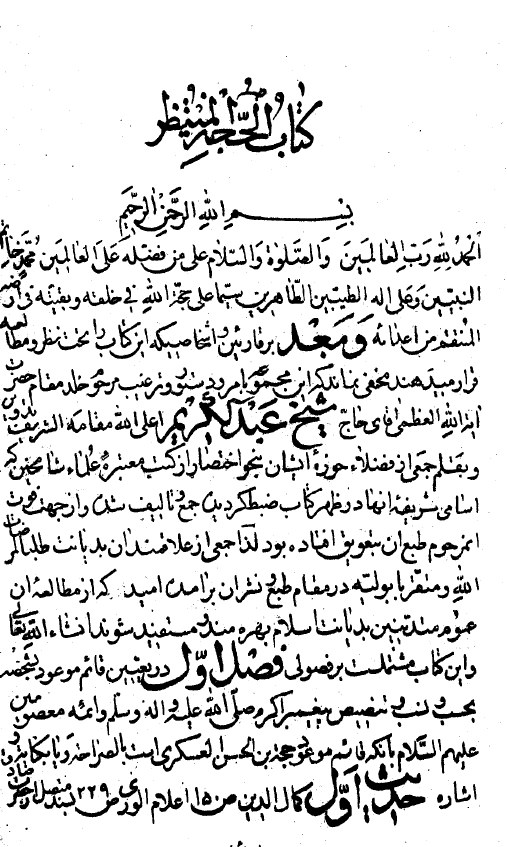 كتاب الحجة المنتظر
بسم الله الرحمن الرحيم
الحمد لله رب العالمين والصلوة والسلام على من فضله على العالمين محمد خاتم
النبيين وعلى اله الطيبين الطاهرين سيما على حجة الله في خلفته وبقيته في ارضه
المنتقم من اعدائه وبعد بر قارئين و اشخاصیکه این کتاب را تحت نظر و مطالعه
قرار میدهند مخفی نماند که این مجموعه بامر و دستور و ترغیب مرحوم خلد مقام حضرت
آیة الله العظمی اقای حاج شیخ عبدالکریم اعلی الله مقامه الشریف
و بقلم جمعی از فضلاء حوزهٔ ایشان بنحو اختصار از کتب معتبره علماء که
اسامی شریفهٔ انها در ظهر کتاب ضبط گردیده جمع و تالیف شده و از جهت فوت
انمرحوم طبع ان بتعویق افتاده بود لذا جمعی از علاقمندان بدیانت طلبا لمرضات
الله و متقربا بولیه در مقام طبع و نشر ان برامدن امید که از مطالعهٔ ان
عموم متدینین بدیانت اسلام بهره مند و مستفیذ شوند انشاء الله تعالی
و این کتاب مشتملست بر فصولی فصل اول در تعیین قائم موعود بشخصه
بحسب و نسب و تنصیص پیغمبر اکرم صلی الله علیه و اله وسلم و ائمه معصومین
علیهم السلام بانکه قائم موعود حجة بن الحسن العسکری است بالصراحة و یا بکنایه و
اشاره حدیث اول کمال الدین ص ۱۵۰ اعلام الوری ص ۲۲۹ بسند متصل از